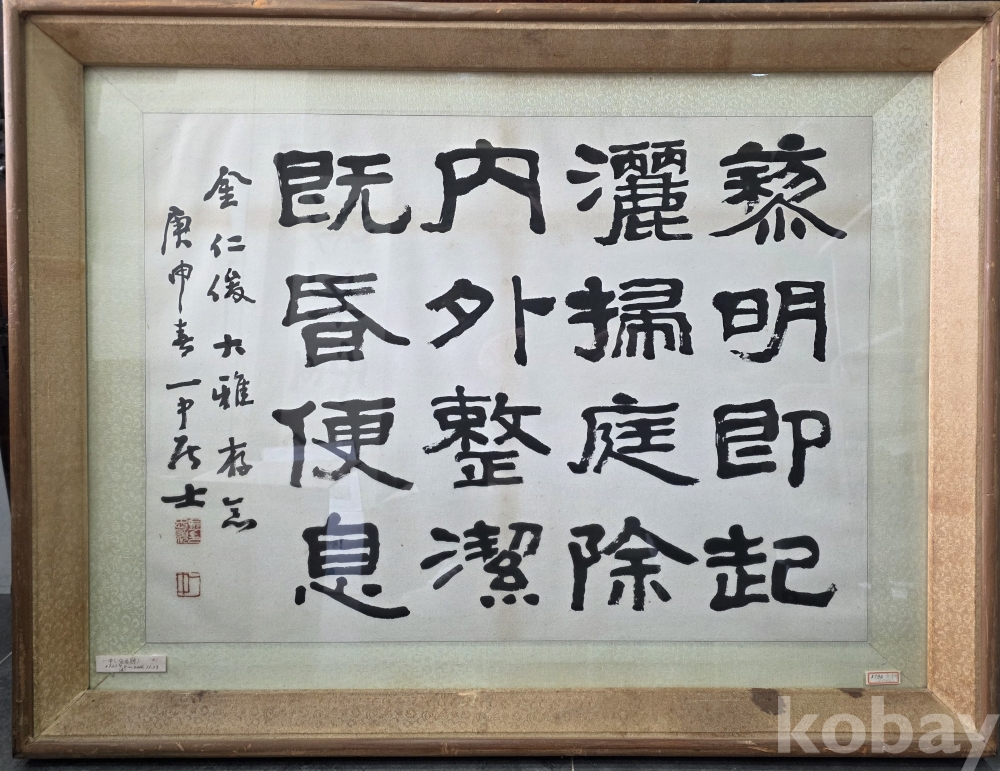 黎明即起
灑掃庭除
内外整潔
既昏便息
金仁俊大雅存念
庚申春一中居士
kobay